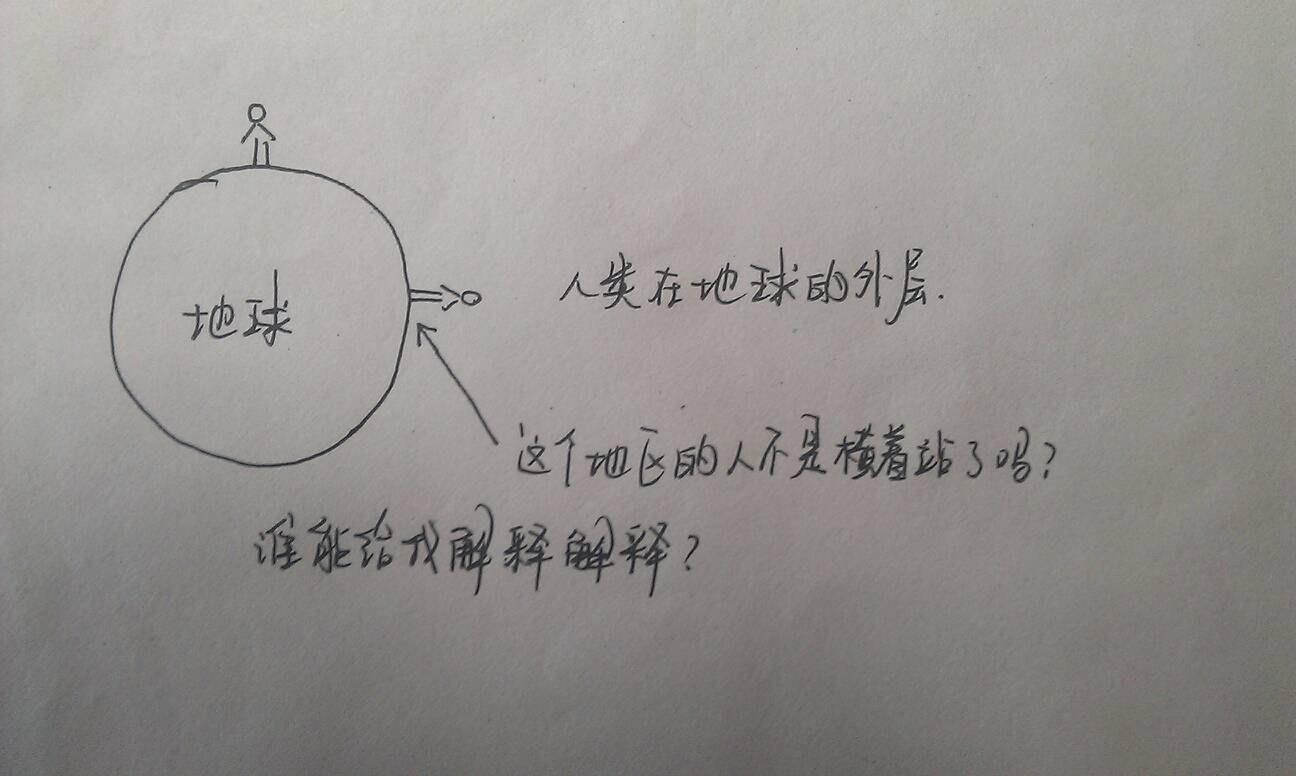 地球
人类在地球的外层.
这个地区的人不是横着站了吗?
谁能给我解释解释?